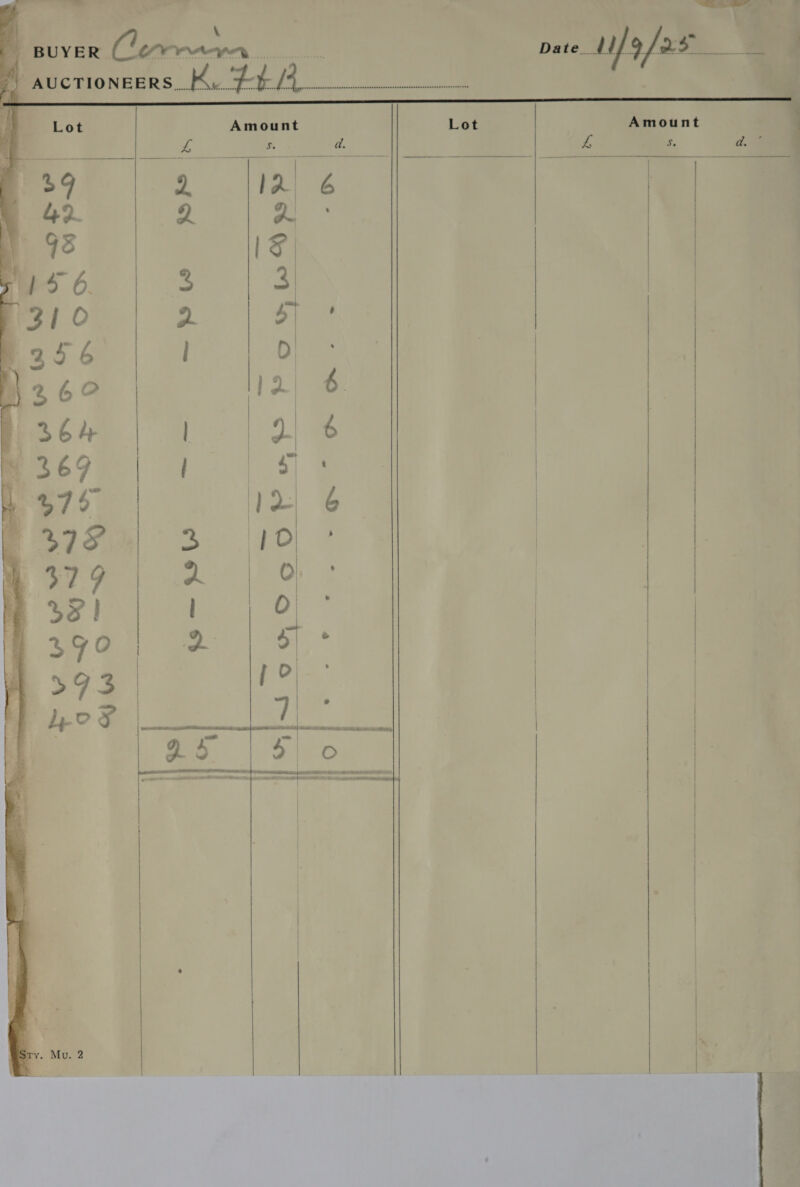 BUYER Date 11/9/25
AUCTIONEERS K. F & R
Lot Amount Lot Amount
£ s. d. £ s. d.
39 2 12 6
42 2 2 "
98 18
156 3 3
310 2 5 "
356 1 0 "
360 12 6
364 1 2 6
369 1 5 "
375 12 6
378 3 10 "
379 2 0 "
381 1 0 "
390 2 5 "
393 10 "
408 7 "
25 5 0
Sty. Mu. 2